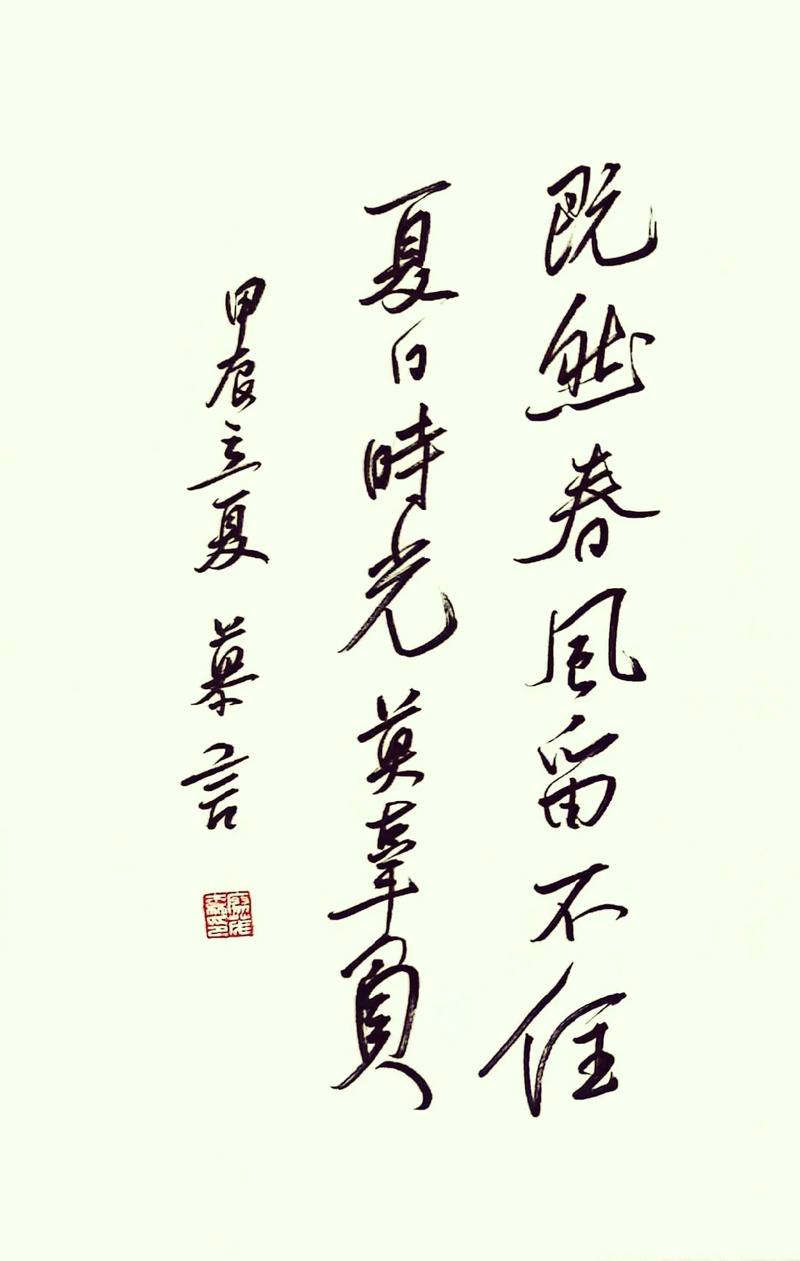 既然春風留不住
夏日時光莫辜負
甲辰立夏 慕言